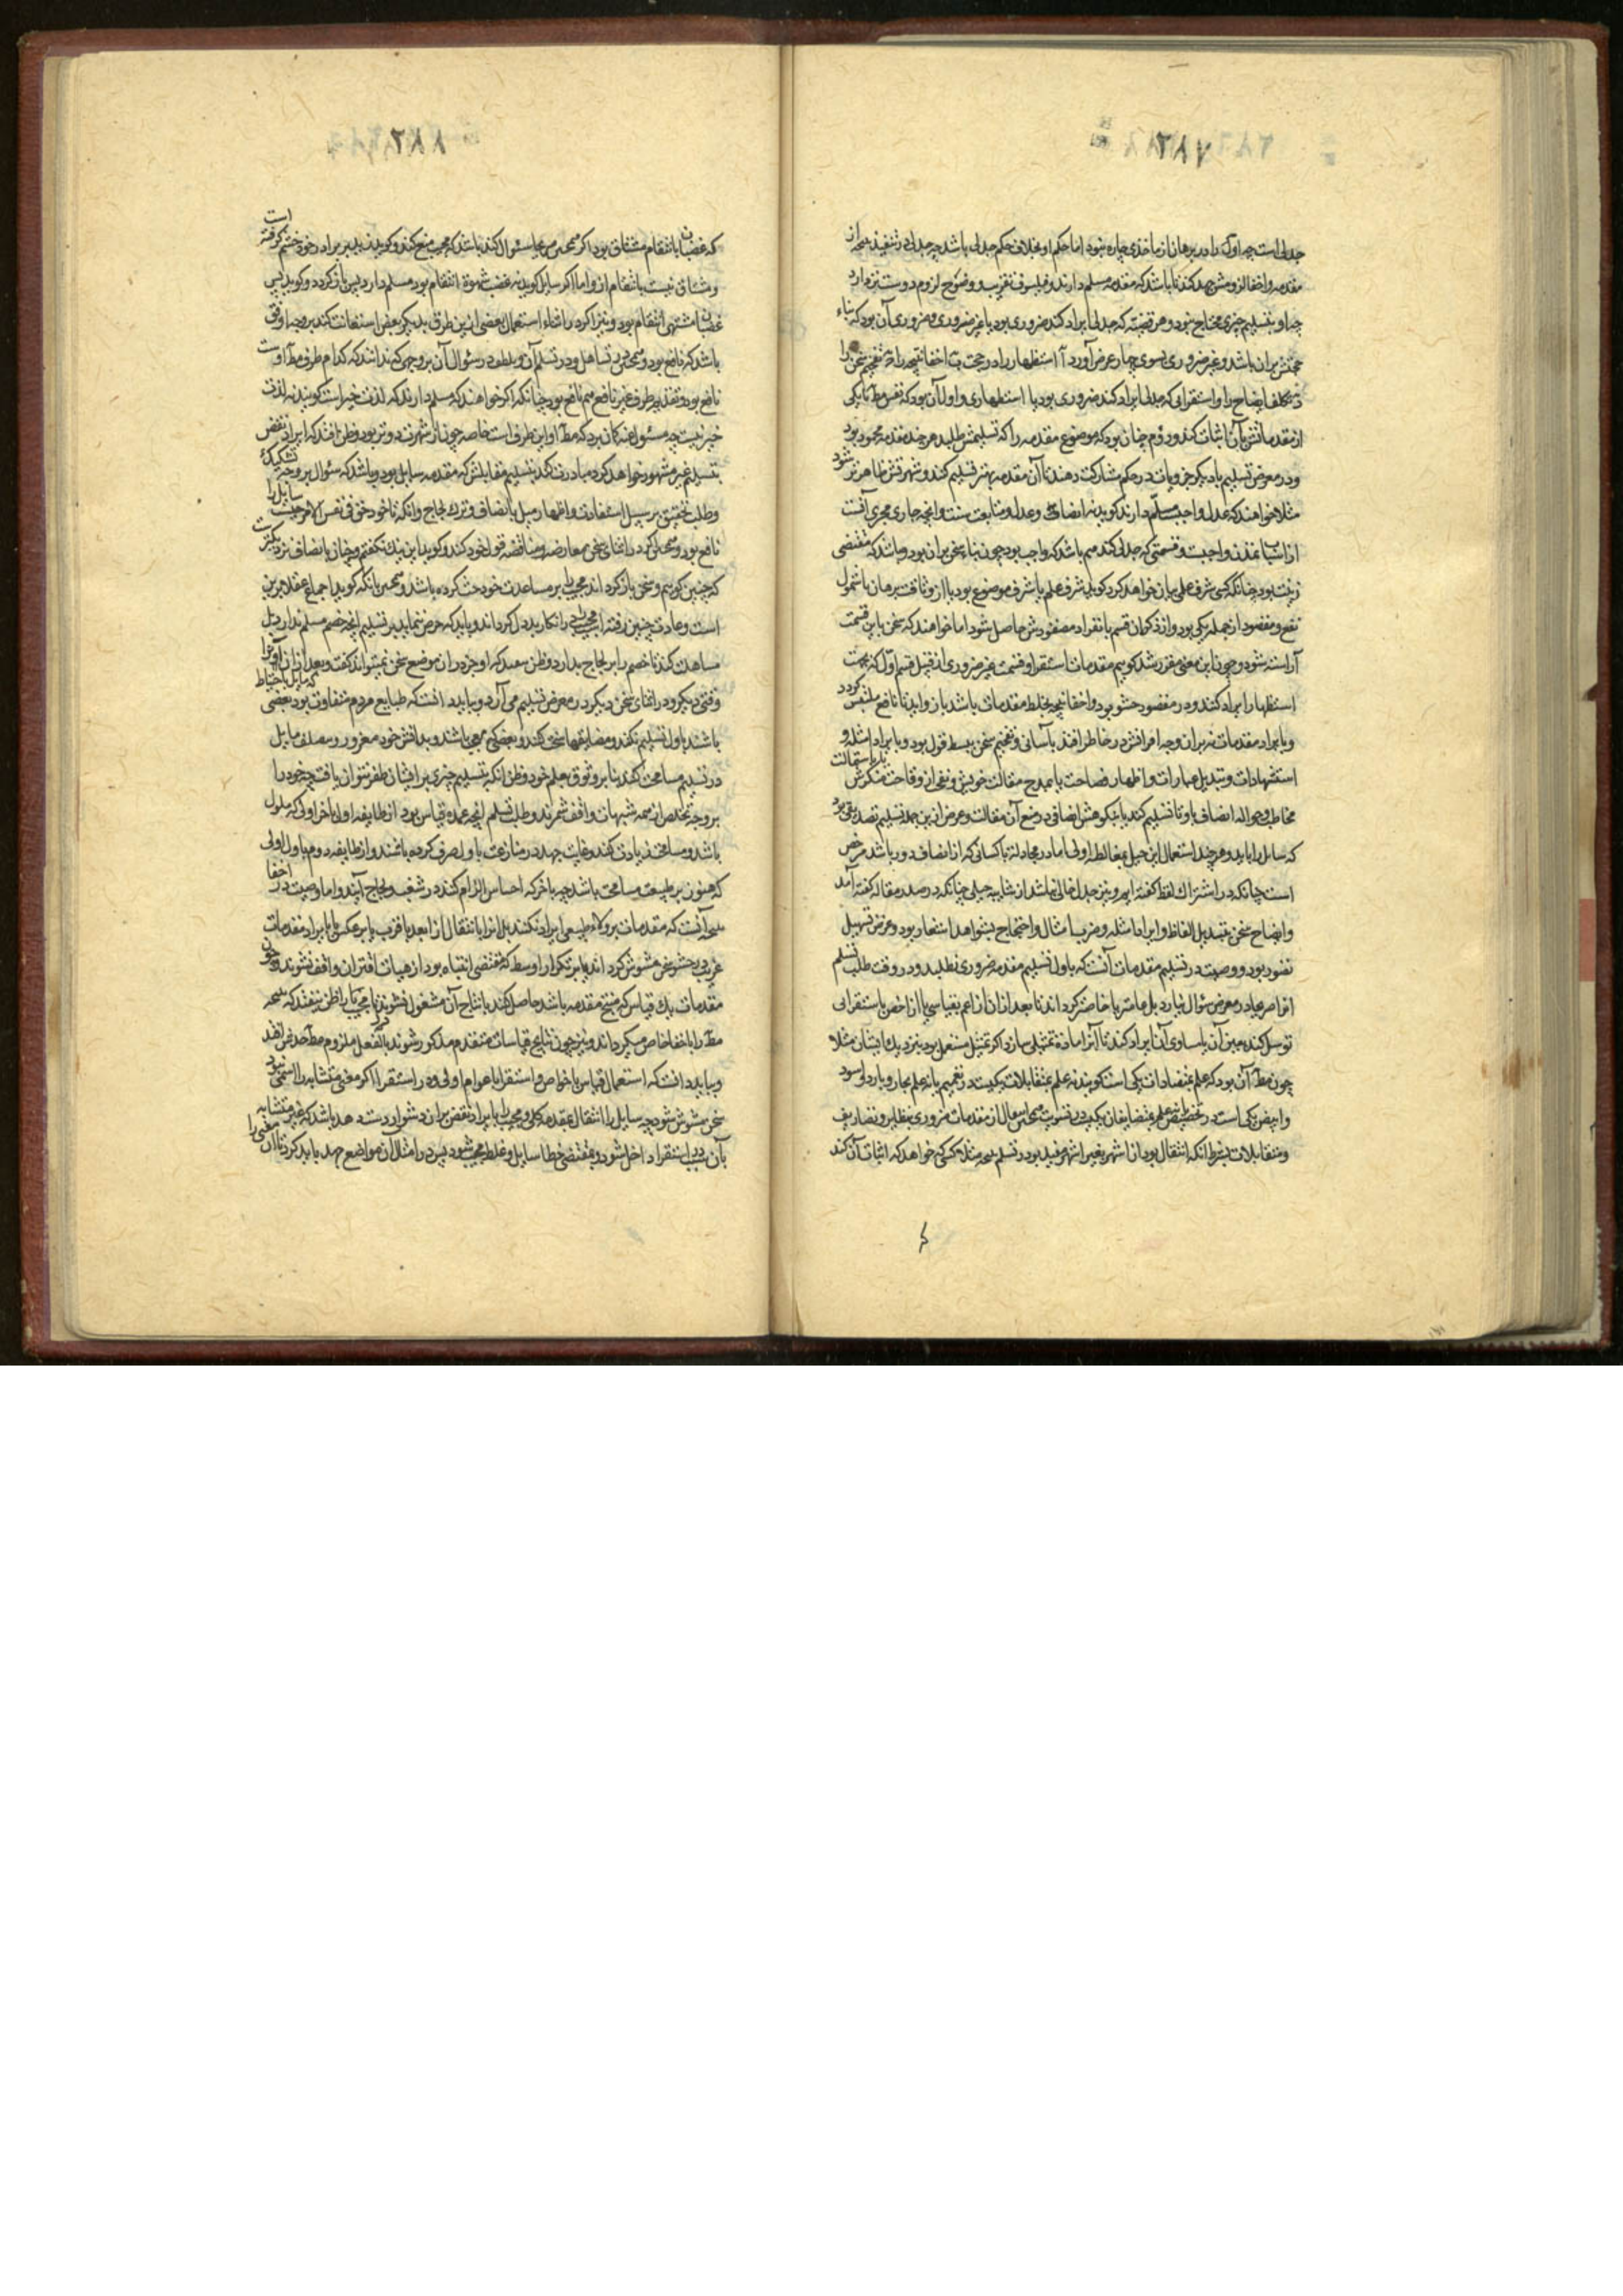 جدلی است چه اول را در برهان از ماخذی چاره نبود اما حکم او بخلاف حکم جدلی باشد چه جدلی در تنفیذ نتیجه از
مقدمه و اخفا لزومش جهد کند تا باشد که مقدمه مسلم دارند و فیلسوف تقریب و وضوح لزوم دوست تر دارد
چه او بتسلیم چیزی محتاج نبود و هر قضیه که جدلی ایراد کند ضروری بود یا غیر ضروری و ضروری آن بود که بناء
حجتش بران باشد و غیر ضروری بسوی چهار غرض آورد آ استظهار را در حجت ب اخفا نتیجه را ج تفخیم سخن را
د تکلف ایضاح را و استقرایی که جدلی ایراد کند ضروری بود یا استظهاری و اول آن بود که نفس مط یا یکی
از مقدماتش بآن اثبات کند و دوم چنان بود که موضوع مقدمه را که تسلیمش طلبد هر چند مقدمه محمود بود
و در معرض تسلیم با دیگر جزویات در حکم مشارکت دهند تا آن مقدمه بهتر تسلیم کند و شهرتش ظاهرتر شود
مثلا خواهند که عدل واجب مسلّم دارند گویند نه انصاف و عدل و متابعت سنت و انچه جاری مجری آنست
از اسباب تمدن واجبست و قسمتی که جدلی کند هم باشد که واجب بود چون بناء سخن بران بود و باشد که مقتضی
زینت بود چنانکه کسی شرف علمی بیان خواهد کرد گوید شرف علم یا شرف موضوع بود یا از وثاقت برهان یا شمول
نفع و مقصود از جمله یکی بود و از ذکر آن قسم بانفراد مقصودش حاصل شود اما خواهند که سخن باین قسمت
آراسته شود و چون این معنی مقرر شد گوییم مقدمات استقرا و قسمت غیر ضروری از قبیل قسم اوّل که بجهت
استظهار ایراد کنند و در مقصود حشو بود و اخفا نتیجه بخلط مقدمات باشد بازواید تا نافع ملتبس گردد
و بایراد مقدمات نه بران وجه اقرانش در خاطر افتد بآسانی و تفخیم سخن ببسط قول بود و بایراد امثله و
استشهادات و تبدیل عبارات و اظهار فصاحت یا بمدح مقالت خویش و نفی از وقاحت منکرش یا باستمالت
مخاطب و حواله انصاف باو تا تسلیم کند یا بنکوهش انصافی در منع آن مقالت و غرض ازین جمله تسلیم تصدیقی بود
که سایل را باید و هر چند استعمال این حیل بمغالطه اولی اما در مجادلة با کسانی که از انصاف دور باشد مرخص
است چنانکه در اشتراک لفظ گفته ایم و نیز جدل خالی نباشد از شایبه حیلی چنانکه در صدر مقاله گفته آمد
و ایضاح سخن بتبدیل الفاظ و ایراد امثله و ضرب امثال و احتجاج بشواهد اشعار بود و غرض تسهیل
تصور بود و وصیت در تسلیم مقدمات آنست که باول تسلیم مقدمه ضروری نطلبد و در وقت طلب تسلم
اقتصر عبا در معرض سوال نیارد بل عامتر یا خاصتر گرداند تا بعد ازان از اعم بقیاسی یا از اخص باستقرائی
توسل کند بعین آن یا مساوی آن ایراد کند تا آنرا ماده تمثیلی سازد اگر تمثیل مستعمل بود بنزدیک ایشان مثلا
چون مط آن بود که علم بمتضادات یکی است گویند نه علم بمتقابلات یکیست در تعمیم یا نه علم بحار و بارد و اسود
و ابیض یکی است در تخصیص یا نه علم بمتضایفان یکیست در تسویت و همچنین انتقال از مقدمات ضروری بنظایر و تصاریف
و متقابلات بشرط آنکه انتقال بود از اشهر بغیر اشهر مفید بود در تسلم نتیجه مثلا کسی خواهد که اثبات آن کند
که غضبان بانتقام مشتاق بود اگر همچنین عبا سئوال کند باشد که مجیب منع کند و گوید پدر بر برادر خود خشم گرفته است
و مشتاق نیست بانتقام ازو اما اگر سایل گوید نه غضب شهوة انتقام بود مسلم دارد پس باز گردد و گوید پس
غضبان مشتهی انتقام بود و نیز اگر در اثناء استعمال بعضی ازین طرق بدیگر بعض استعانت کند بر وجه اوفق
باشد که نافع بود و همچنین تساهل ودر تسلم آن و تلطف در سئوال آن بر وجهی که ندانند که کدام طرف مط اوست
نافع بود و تقدیم طرف غیر نافع هم نافع بود چنانکه اگر خواهند که مسلم دارند که لذت خیر است گویند نه لذت
خیر نیست چه مسئول عنه گمان برد که مط او این طرفست خاصه چون از شهرت دورتر بود و ظن افتد که ایراد نقض
بتسلیم غیر مشهور خواهد کرد مبادرت کند بتسلیم مقابلش که مقدمه سایل بود و باشد که سئوال بر وجه تشکیک
و طلب تحقیق بر سبیل استفادت و اظهار میل بانصاف و ترک لجاج و انکه تا خود حق فی نفس الامر چیست سایل را
نافع بود و همچنین گر در اثنای سخن معارضه و مناقضه قول خود کند و گوید این نیک نگفتم و چنان بانصاف نزدیکتر است
که چنین گوییم و سخن باز گرداند مجیب را بر مساعدت خود حث کرده باشد و همچنین بانکه گوید اجماع عقلا برین
است و عادت چنین رفته مجیب را از انکار بددل گرداند و باید که حرص ننماید بر تسلیم انچه خصم مسلم ندارد بل
مساهلت کند تا خصم را بر لجاج بدارد و ظن نبرد که او جز دران موضع سخن نمیتواند گفت و بعد ازان آنرا
وقتی دیگر و در اثنای سخن دیگر در معرض تسلیم می آرد و بباید دانست که طبایع مردم متفاوت بود بعضی که مایل باحتیاط
باشند باول تسلیم نکنند و مضایقها سخت کنند و بعضی که معجب باشند و بدانش خود مغرور و بصلف مایل
در تسلیم مسامحت کنند بنابر وثوق بعلم خود و ظن انکه بتسلیم چیزی بر ایشان ظفر نتوان یافت چه خود را
بر وجه تخلص از همه شبهات واقف شمرند و طلب تسلم انچه عمده قیاس بود از طایفه اول باخر اولی که ملول
باشد و مسامحت زیادت کند و غایت جهد در منازعت باول صرف کرده باشند و از طایفه دوم باول اولی
که هنوز بر طبیعت مسامحت باشد چه باخر که احساس الزام کنند در شغب و لجاج آیند و اما وصیت در اخفا
نتیجه آنست که مقدمات بر ولاء طبیعی ایراد نکند بل انرا بانتقال از ابعد باقرب یا بر عکس و یا بایراد مقدمات
غریب در حشو سخن مشوش گرداند یا بر تکرار اوسط که مقتضی انتباه بود از هیات اقتران واقف نشوند و چون
مقدمات یک قیاس که منتج مقدمه باشد حاصل کند بانتاج آن مشغول نشود تا مجیب را ظن نیفتد که نتیجه
مط را با خفا خاص میگرداند و نیز چون نتایج قیاسات متقدم مذکور شوند بالفعل ملزوم مط حدس افتد
و بباید دانست که استعمال قیاس با خواص و استقرا با عوام اولی و در استقرا اگر معنی متشابه را اسمی نبود
سخن مشوش شود چه سایل را انتقال بمقدمه کلی و مجیب را بایراد نقض بران دشوار دست دهد باشد که غیر متشابه
بآن سبب در استقرا داخل شود و مقتضی خطا سایل و غلط مجیب شود پس در امثال آن مواضع جهد باید کرد تا آن معنی را